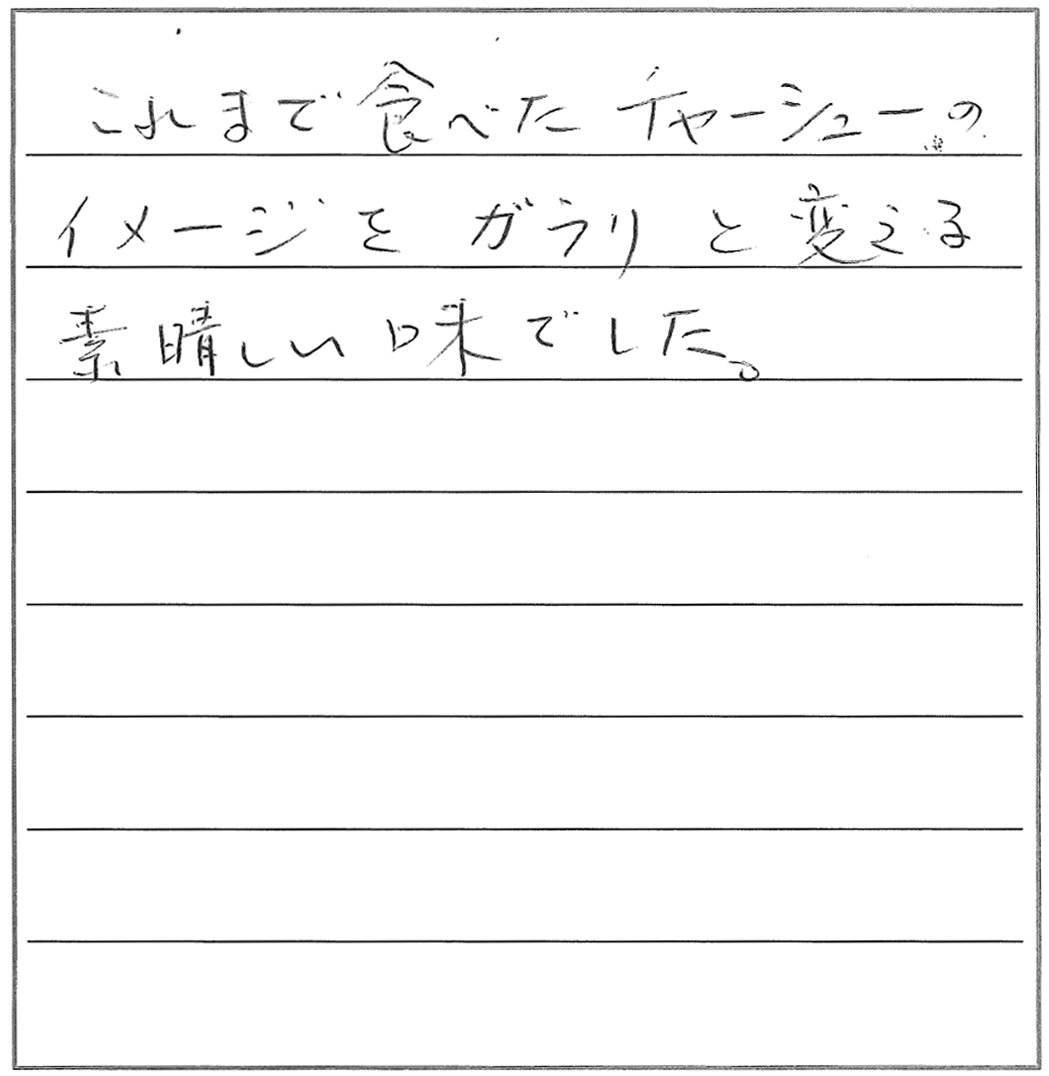 これまで食べたチャーシューの
イメージをガラリと変える
素晴しい味でした。